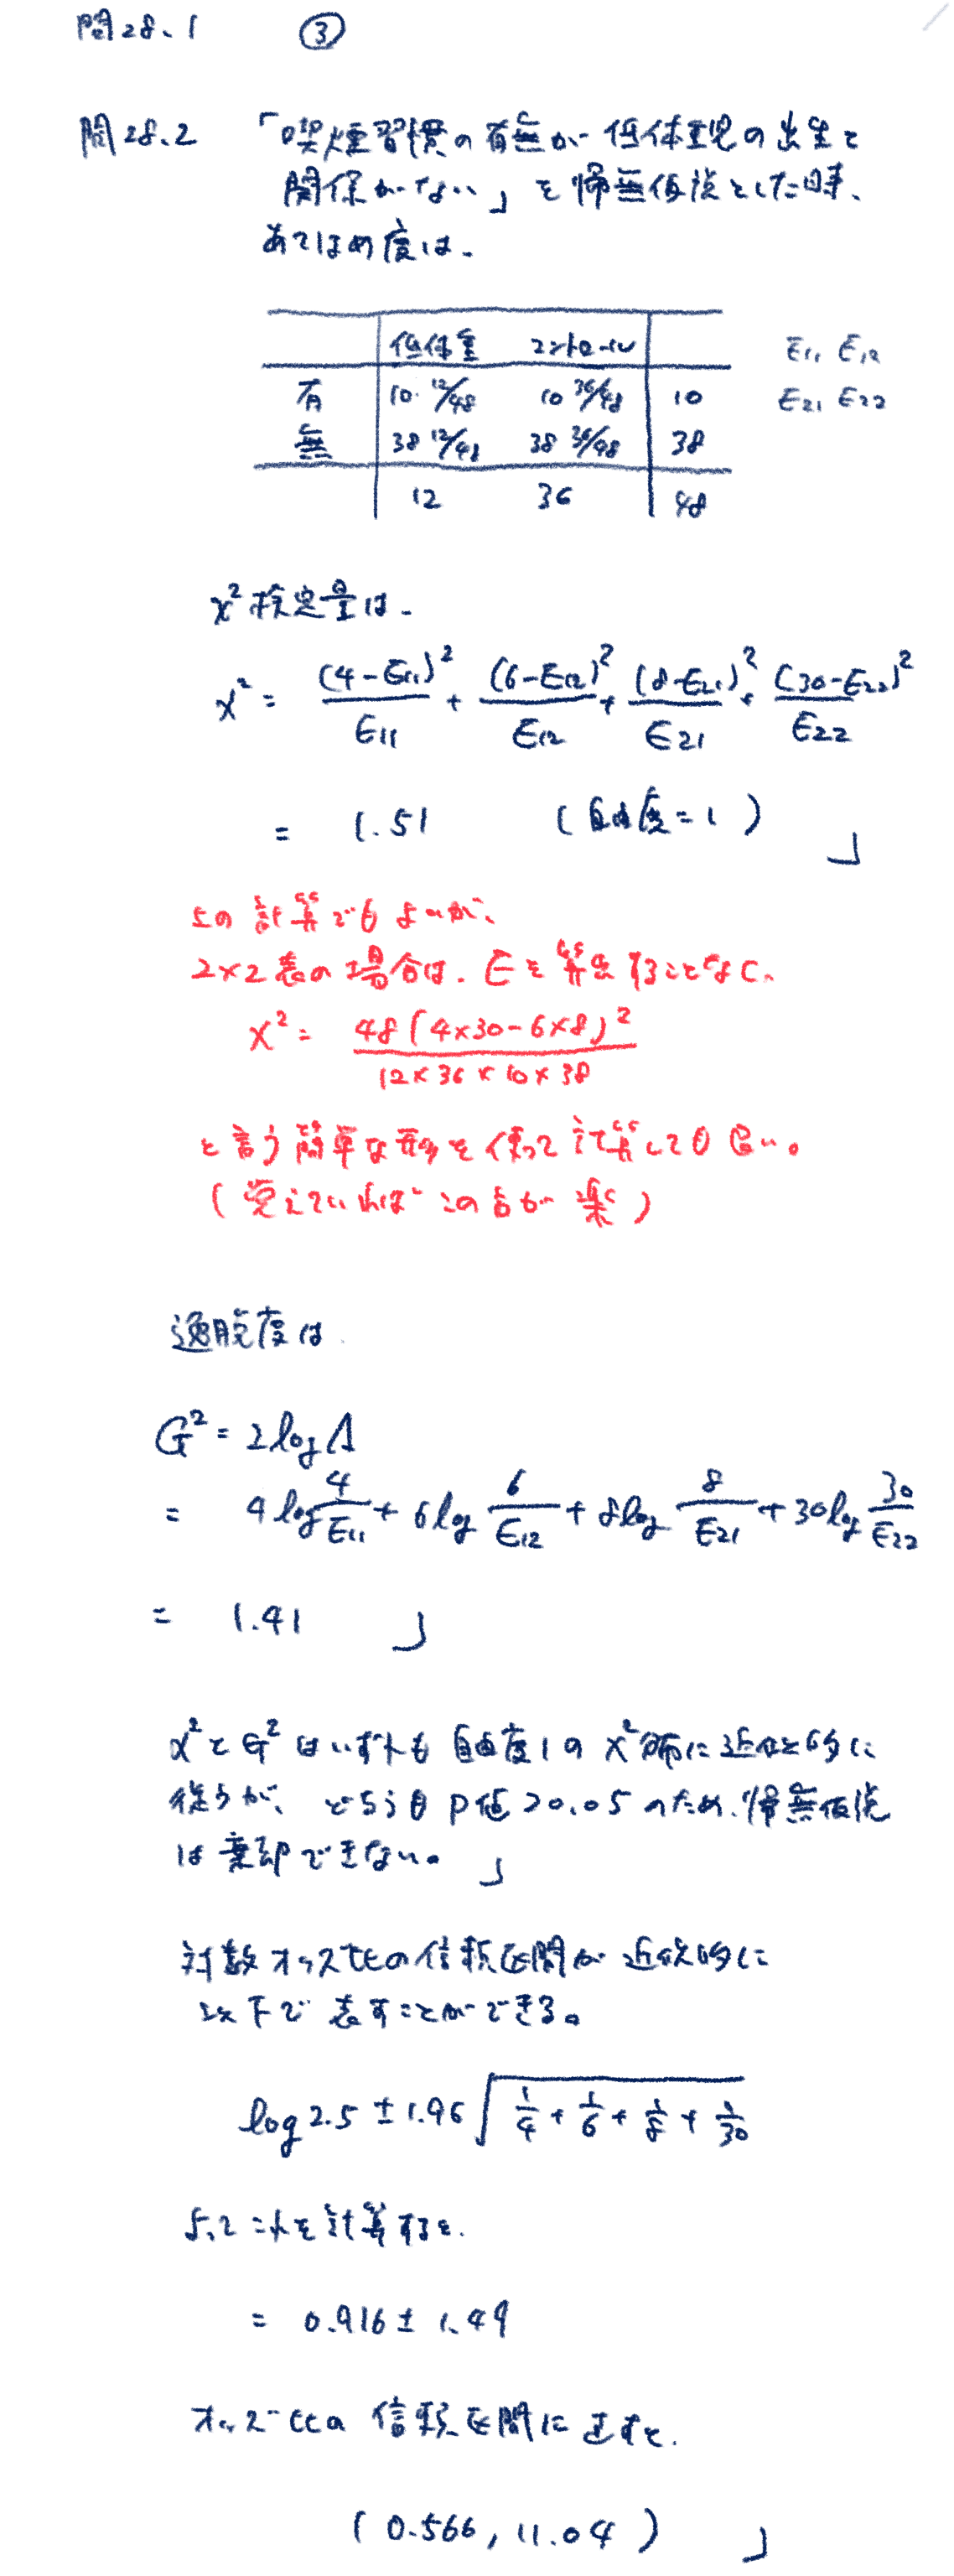 問28.1 ③
問28.2 「喫煙習慣の有無が低体重児の出生と
関係がない」を帰無仮説とした時、
あてはめ度は、
低体重 コントロール
有 10・12/48 10 36/48 10
無 38 12/48 38 36/48 38
12 36 48
E11 E12
E21 E22
χ²検定量は、
χ² = (4-E11)²/E11 + (6-E12)²/E12 + (8-E21)²/E21 + (30-E22)²/E22
= 1.51 (自由度=1) 」
上の計算でもよいが、
2×2表の場合は、Eを算出することなく、
χ² = 48(4×30-6×8)²/12×36×10×38
と言う簡単な形を使って計算しても良い。
(覚えていればこの方が楽)
逸脱度は
G² = 2logΛ
= 4log 4/E11 + 6log 6/E12 + 8log 8/E21 + 30log 30/E22
= 1.41 」
χ²とG²はいずれも自由度1のχ²分布に近似的に
従うが、どちらもP値>0.05のため、帰無仮説
は棄却できない。 」
対数オッズ比の信頼区間が近似的に
以下で表すことができる。
log2.5 ± 1.96√(1/4 + 1/6 + 1/8 + 1/30)
よってこれを計算すると、
= 0.916 ± 1.49
オッズ比の信頼区間に直すと、
(0.566, 11.04) 」